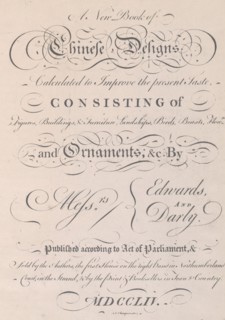 A New Book of
Chinese Designs
Calculated to Improve the present Taste,
CONSISTING of
Figures, Buildings, & Furniture, Landskips, Birds, Beasts,
and Ornaments, &c. By
Mess.rs { Edwards,
And
Darly.
Publish'd according to Act of Parliament, &
Sold by the Authors, the first House on the right Hand in Northumberland
Court, in the Strand, & by the Booksellers in Town & Country.
MDCCLIV.